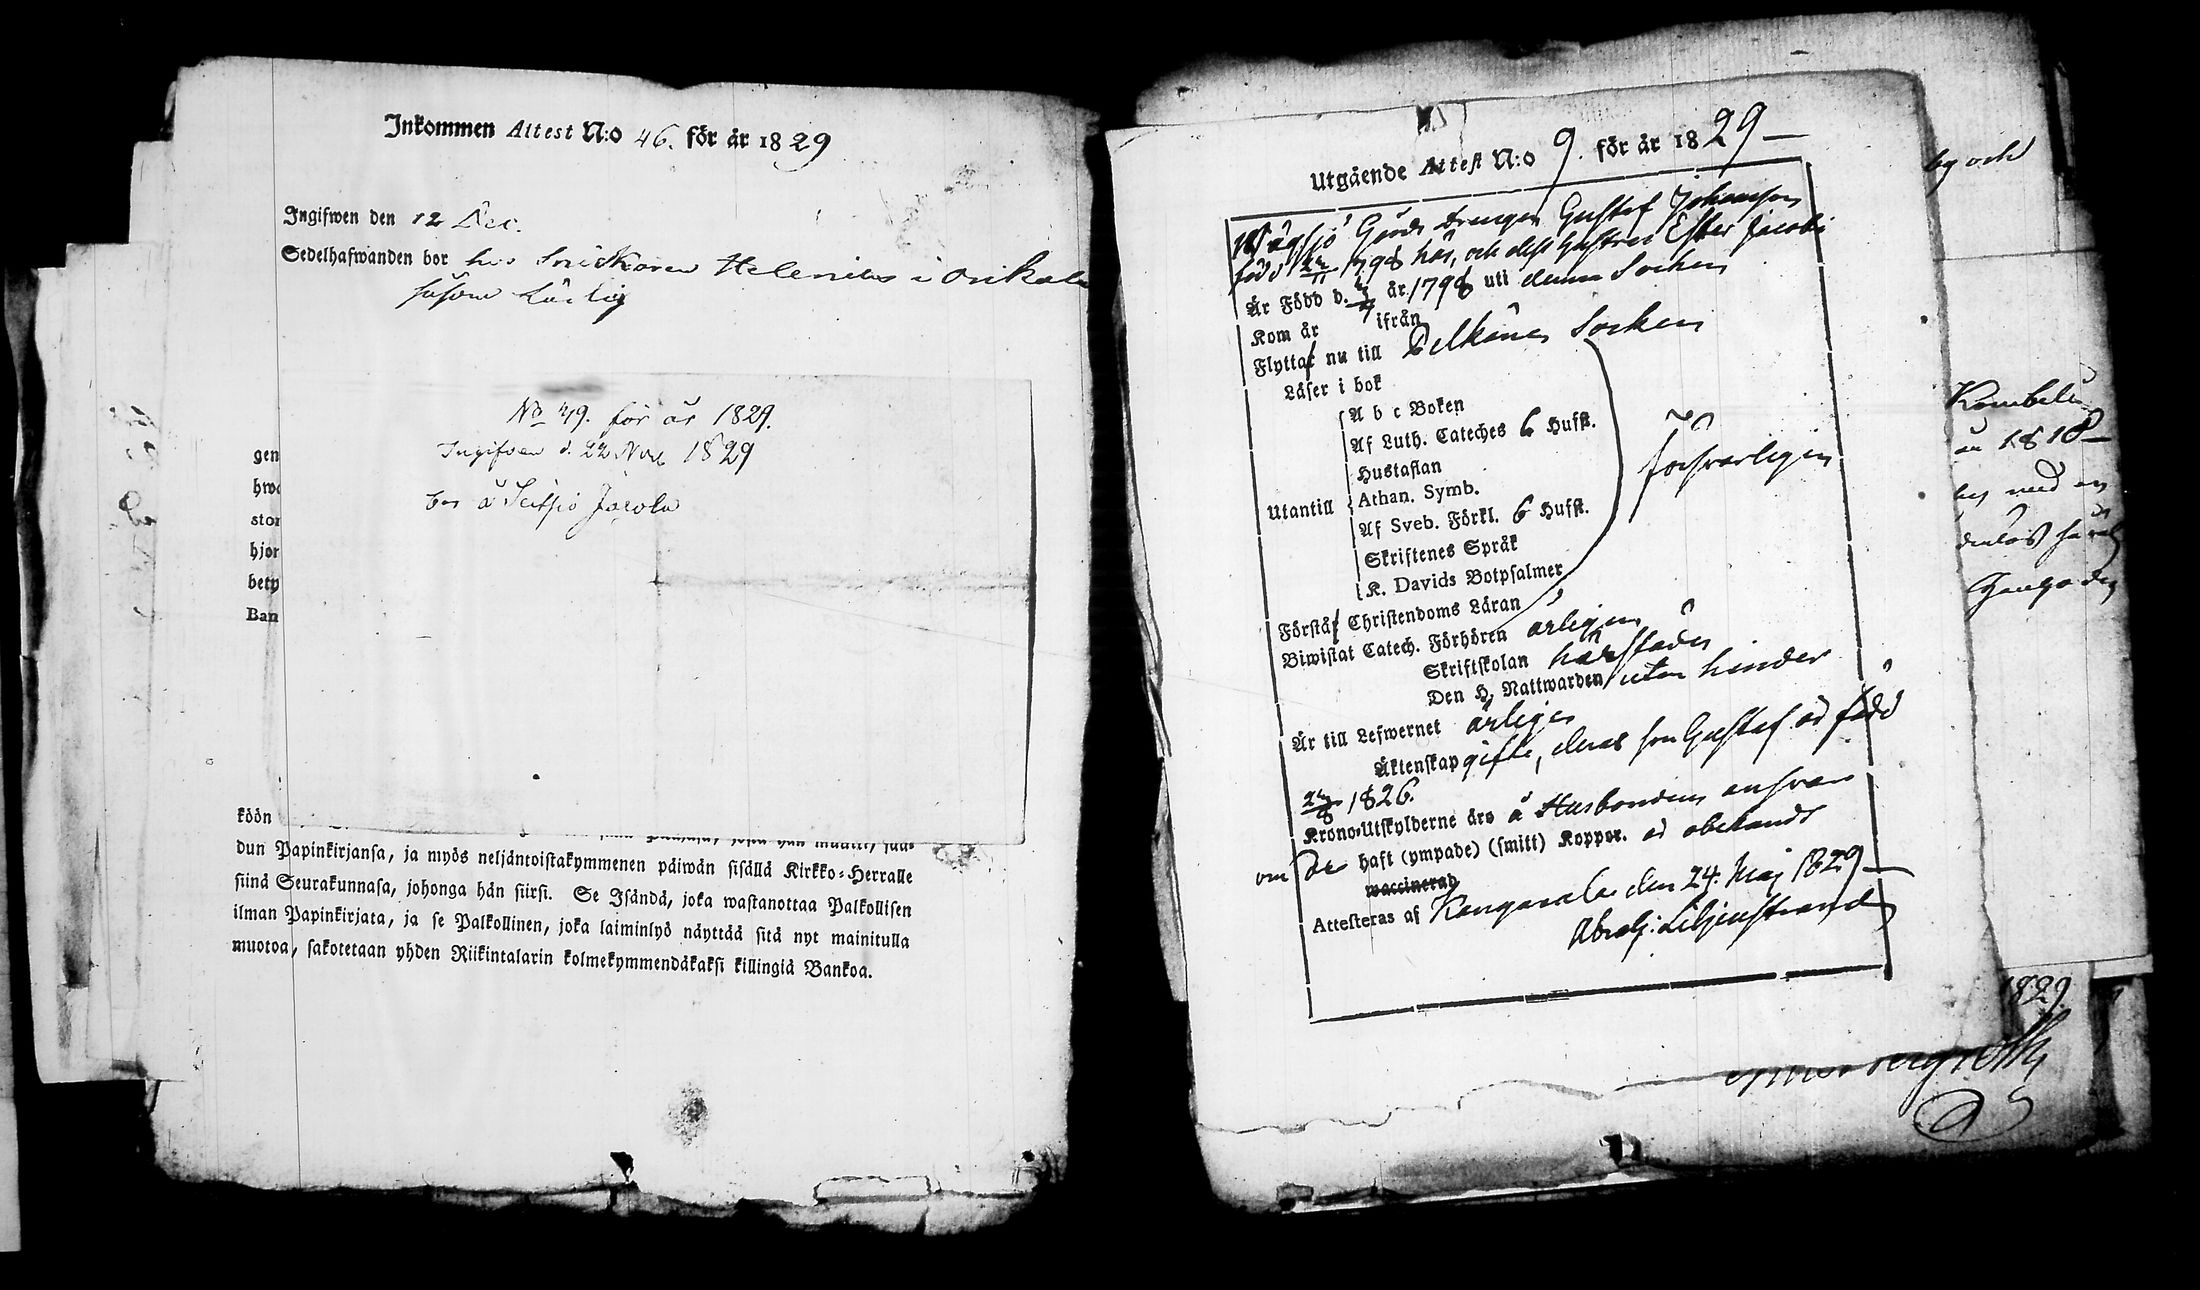 Inkommen Attest N:o 46. för år 1829
Ingifwen den 12 Dec.
Sedelhafwanden bor hos Snickaren Helenius i Onkala
såsom Lärling
No 49. för år 1829.
Ingifven d. 22 Nov 1829
bor å Seitsjö Jacola
gen
hwa
stor
hjor
bety
Ban
köön
dun Papinkirjansa, ja myös neljäntoistakymmenen päiwän sisällä Kirkko-Herralle
siinä Seurakunnasa, johonga hän siirsi. Se Isändä, joka wastanottaa Palkollisen
ilman Papinkirjata, ja se Palkollinen, joka laiminlyö näyttää sitä nyt mainitulla
muotoa, sakotetaan yhden Riikintalarin kolmekymmendäkaksi killingiä Bankoa.
Utgående Attest N:o 9. för år 1829
Gårds drengen Gustaf Johansson
född 1798 här, och dess hustru Ester Jacobs
Är Född d. år 1798 uti denna Socken
Kom år ifrån
Flyttar nu till Pelkäne Socken
Läser i bok
A b c Boken
Af Luth. Cateches 6 Hufst.
Hustaflan
Utantill Athan. Symb.
försvarligen
Af Sveb. Förkl. 6 Hufst.
Skriftenes Språk
K. Davids Botpsalmer
Förstår Christendoms Läran
Biwistat Catech. Förhören årligen
Skriftskolan härstädes
Den H. Nattwarden utan hinder
Är till Lefwernet ärlige
Äktenskap gifte, deras son Gustaf är född
1826.
Krono-Utskylderne äro å Husbondens ansvar
om de haft (ympade) (smitt) Koppor. är obekandt
waccinerad
Attesteras af Kangasala den 24. Maj 1829
Abrah: Liljenstrand
by och
år 1818
1829.